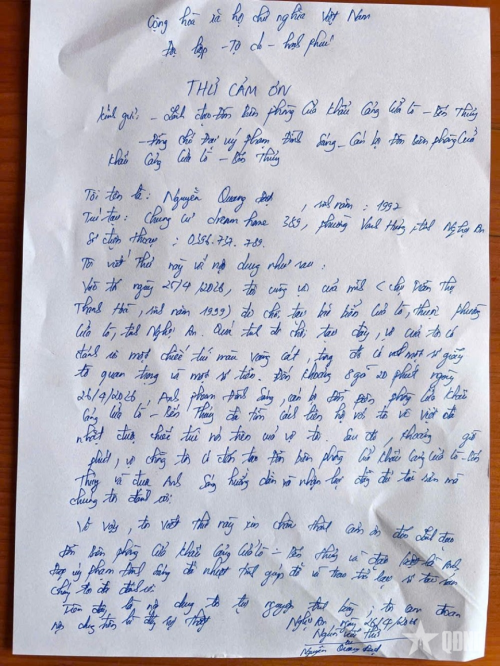 Cộng hòa xã hội chủ nghĩa Việt Nam
Độc lập - Tự do - hạnh phúc
THƯ CẢM ƠN
Kính gửi: - Lãnh đạo Đồn Biên phòng Cửa khẩu Cảng Cửa Lò - Bến Thủy
- Đồng chí Đại úy Phạm Đình Sáng - Cán bộ Đồn biên phòng Cửa
khẩu Cảng Cửa Lò - Bến Thủy
Tôi tên là: Nguyễn Quang, sinh năm: 1992
Trú tại: Chung cư dream home 389, phường Vinh Hưng, tỉnh Nghệ An
Số điện thoại: 0396.737.789
Tôi viết thư này về nội dung như sau:
Vào tối ngày 25/4/2026, tôi cùng vợ của mình (Thị
Thanh Hà, sinh năm 1999) đi chơi tại bãi biển Cửa Lò, thuộc phường
Cửa Lò, tỉnh Nghệ An. Quá trình đi chơi tại đây, vợ của tôi có
đánh rơi một chiếc túi màu vàng cát, trong đó có một số giấy
tờ quan trọng và một số tiền. Đến khoảng 8 giờ 20 phút ngày
26/4/2026, Anh Phạm Đình Sáng, cán bộ Đồn Biên phòng Cửa khẩu
Cảng Cửa Lò - Bến Thủy đã tìm cách liên hệ với tôi về việc đã
nhặt được chiếc túi nói trên của vợ tôi. Sau đó, khoảng giờ
phút, vợ chồng tôi có đến Đồn biên phòng Cửa khẩu Cảng Cửa Lò - Bến
Thủy và được Anh Sáng hướng dẫn và nhận lại đầy đủ tài sản mà
chúng tôi đánh rơi
Vì vậy, tôi viết thư này xin chân thành cảm ơn đến Lãnh đạo
Đồn Biên phòng Cửa khẩu Cảng Cửa Lò - Bến Thủy và Anh
Đại úy Phạm Đình Sáng đã nhiệt tình giúp đỡ và trao trả lại số tài sản
chúng tôi đã đánh rơi
Trên đây là nội dung tôi tự nguyện trình bày, tôi cam đoan
nội dung trên là đúng sự thật
Nghệ An, ngày 26/4/2026
Người viết thư
Nguyễn Quang